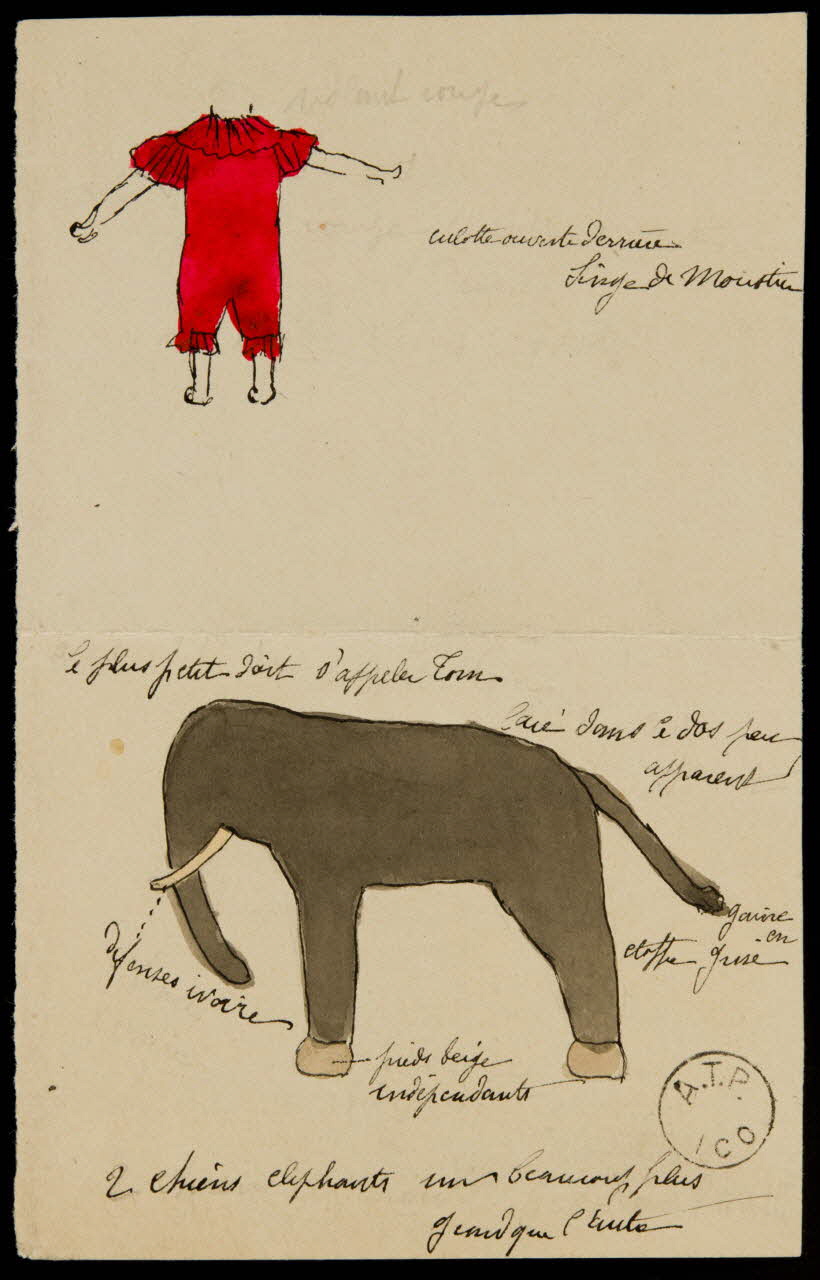 volant rouge
culotte ouverte derrière
Singe de Moustier
le plus petit doit s'appeler Tom
lacé dans le dos peu
apparent
gaine
en
etoffe grise
défenses ivoire
pieds beige
indépendants
A.T.P.
ICO
2 chiens elephants un beaucoup plus
grand que l'autre